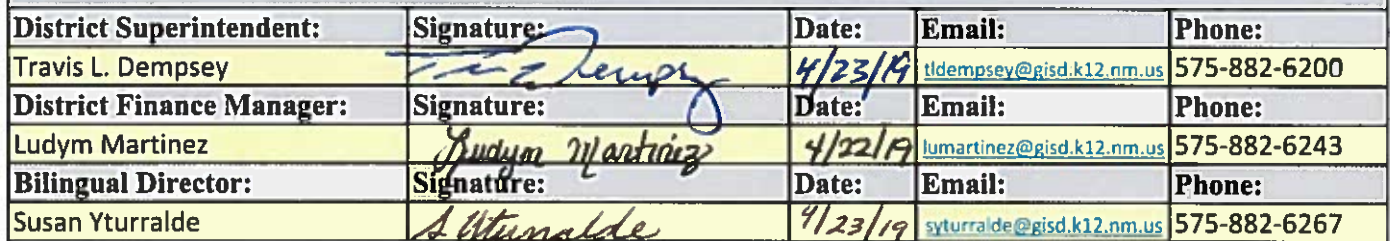 District Superintendent: Signature: Date: Email: Phone:
Travis L. Dempsey T L Dempsey 4/23/19 tldempsey@gisd.k12.nm.us 575-882-6200
District Finance Manager: Signature: Date: Email: Phone:
Ludym Martinez Ludym Martinez 4/22/19 lumartinez@gisd.k12.nm.us 575-882-6243
Bilingual Director: Signature: Date: Email: Phone:
Susan Yturralde S Yturralde 4/23/19 syturralde@gisd.k12.nm.us 575-882-6267